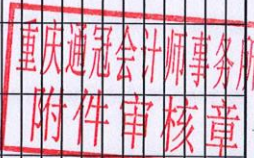 重庆通冠会计师事务所
附件审核章